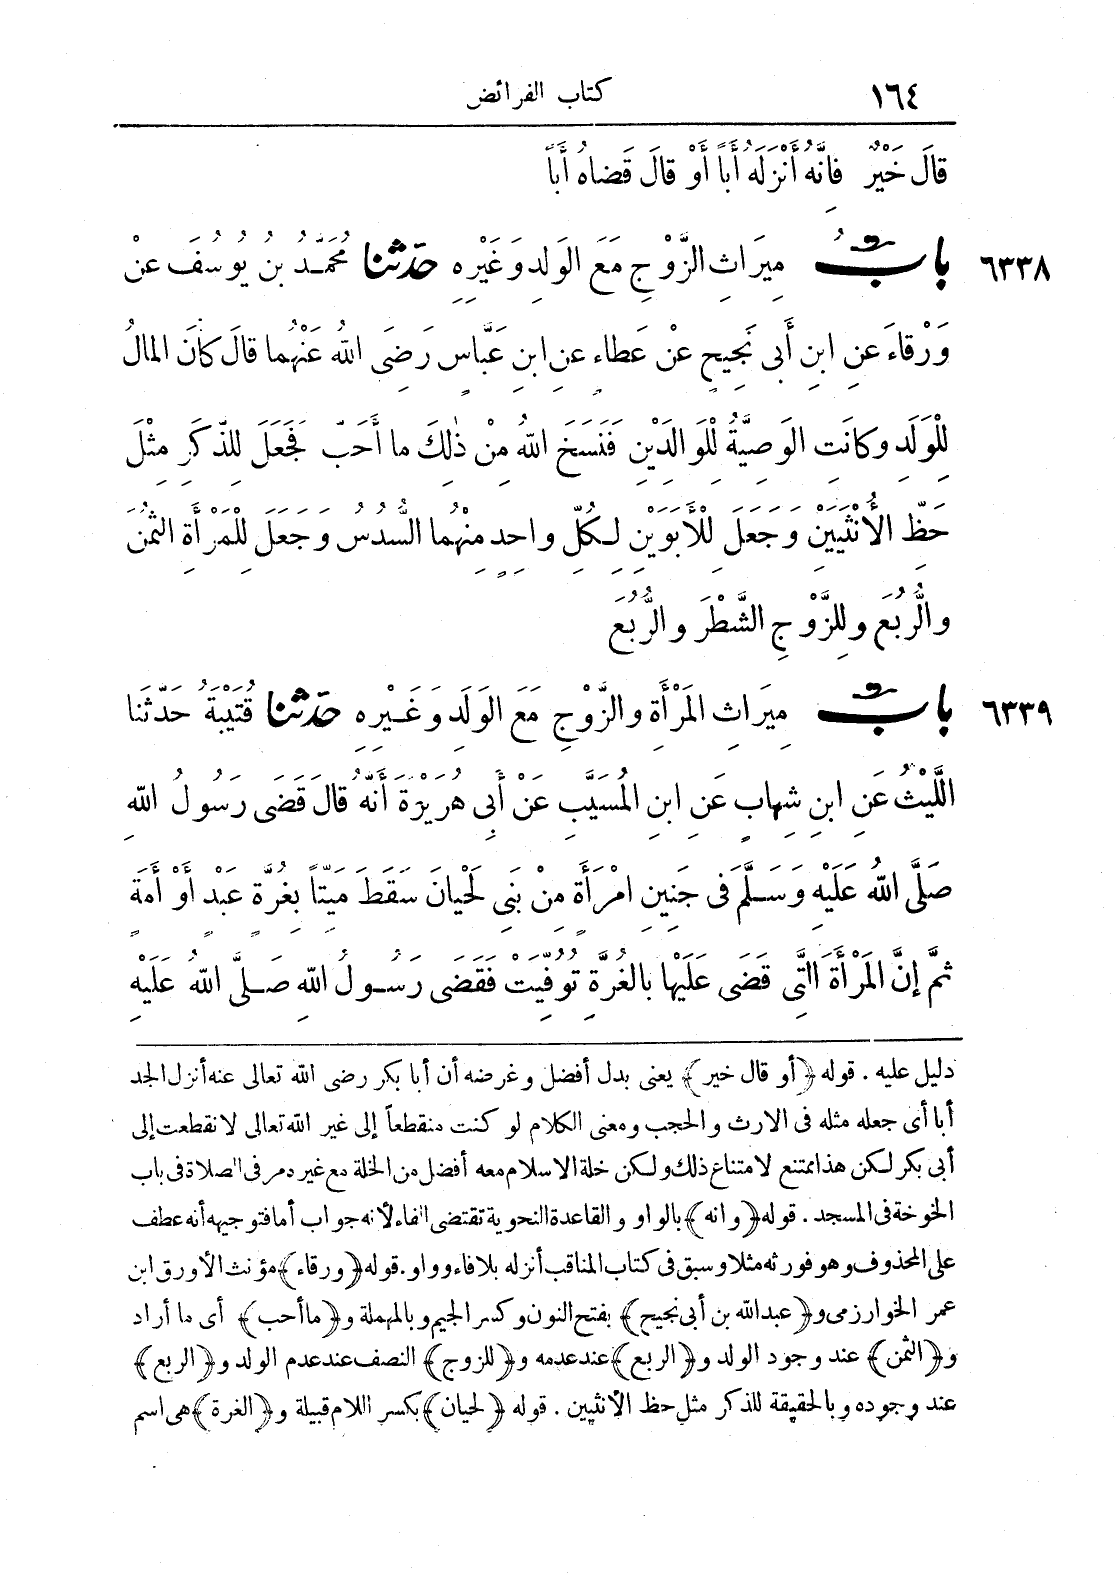 ١٦٤
كتاب الفرائض
قالَ خَيْرٌ فَانَّهُ أَنْزَلَهُ أَبًا أَوْ قالَ قَضاهُ أَبًا
٦٣٣٨ بابُ مِيرَاثِ الزَّوْجِ مَعَ الوَلَدِ وَغَيْرِهِ حَدّثنا مُحَمَّدُ بنُ يُوسُفَ عنْ
وَرْقاءَ عَنِ ابنِ أَبِى نَجِيحٍ عَنْ عَطاءٍ عَنِ ابنِ عَبَّاسٍ رَضِىَ اللهُ عَنْهُما قالَ كانَ المالُ
لِلْوَلَدِ وكانَتِ الوَصِيَّةُ لِلْوَالِدَيْنِ فَنَسَخَ اللهُ مِنْ ذٰلِكَ ما أَحَبّ فَجَعَلَ لِلذَّكَرِ مِثْلَ
حَظِّ الأُنْثَيَيْنِ وَجَعَلَ لِلْأَبَوَيْنِ لِكُلِّ واحِدٍ مِنْهُما السُّدُسُ وَجَعَلَ لِلْمَرْأَةِ الثُّمُنَ
والرُّبُعَ وللِزَّوْجِ الشَّطْرَ والرُّبُعَ
٦٣٣٩ بابُ مِيرَاثِ المَرْأَةِ والزَّوْجِ مَعَ الوَلَدِ وَغَيْرِهِ حَدّثنا قُتَيْبَةُ حَدَّثَنا
اللَّيْثُ عَنِ ابنِ شِهابٍ عَنِ ابنِ المُسَيَّبِ عَنْ أَبِى هُرَيْرَةَ أَنَّهُ قالَ قَضَى رَسُولُ اللهِ
صَلَّى اللهُ عَلَيْهِ وَسَلَّمَ فى جَنِينِ امْرَأَةٍ مِنْ بَنِى لَحْيانَ سَقَطَ مَيِّتاً بِغُرَّةٍ عَبْدٍ أَوْ أَمَةٍ
ثمَّ إِنَّ المَرْأَةَ الَّتِى قَضَى عَلَيْها بالغُرَّةِ تُوُفِّيَتْ فَقَضَى رَسُولُ اللهِ صَلَّى اللهُ عَلَيْهِ
دليل عليه . قوله ﴿أو قال خير﴾ يعنى بدل أفضل وغرضه أن أبا بكر رضى الله تعالى عنه أنزل الجد
أبا أى جعله مثله فى الارث والحجب ومعنى الكلام لو كنت منقطعاً إلى غير الله تعالى لانقطعت إلى
أبى بكر لكن هذا ممتنع لامتناع ذلك ولكن خلة الاسلام معه أفضل من الخلة مع غيره مر فى الصلاة فى باب
الخوخة فى المسجد . قوله ﴿وانه﴾ بالواو والقاعدة النحوية تقتضى الفاء لأنه جواب أما فتوجيهه أنه عطف
على المحذوف وهو فورثه مثلا وسبق فى كتاب المناقب أنزله بلا فاء وواو . قوله ﴿ورقاء﴾ مؤنث الأورق ابن
عمر الخوارزمى و﴿عبد الله بن أبى نجيح﴾ بفتح النون وكسر الجيم وبالمهملة و﴿ما أحب﴾ أى ما أراد
و﴿الثمن﴾ عند وجود الولد و﴿الربع﴾ عند عدمه و﴿للزوج﴾ النصف عند عدم الولد و﴿الربع﴾
عند وجوده وبالحقيقة للذكر مثل حظ الأنثيين . قوله ﴿لحيان﴾ بكسر اللام قبيلة و﴿الغرة﴾ هى اسم